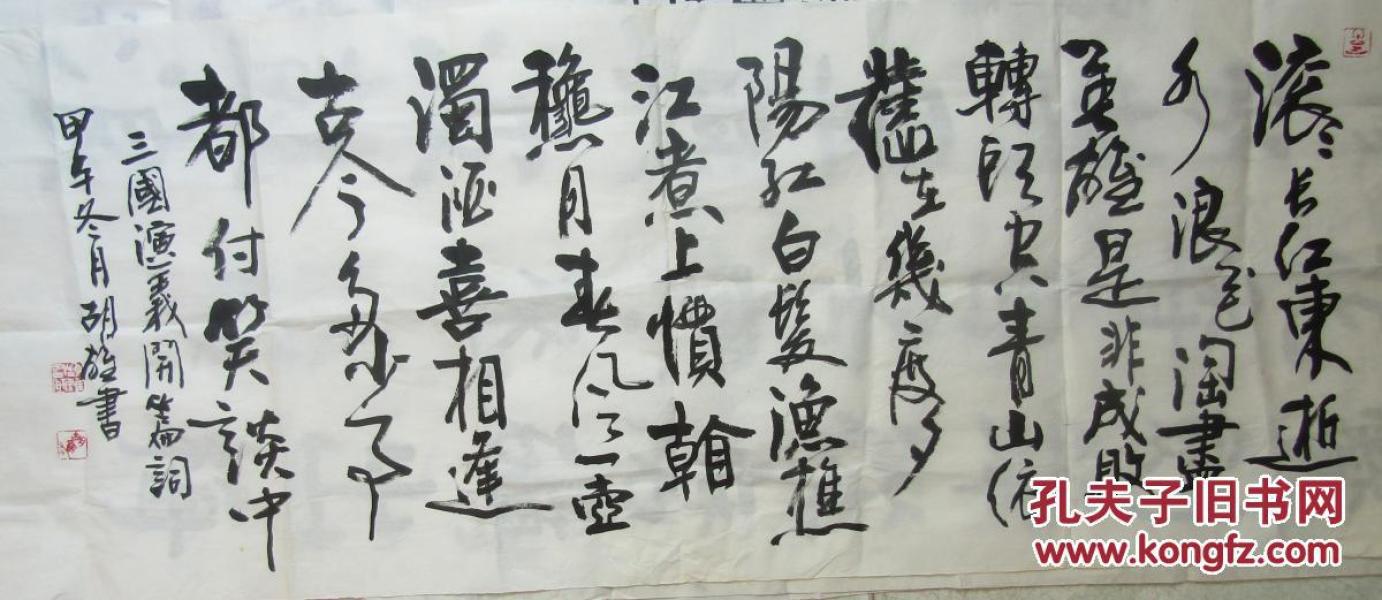 滚滚长江東逝
水浪花淘盡
英雄是非成敗
轉頭空青山依
舊在幾度夕
陽紅白髮漁樵
江煮上慣看
穐月春风一壺
濁酒喜相逢
古今多少事
都付笑談中
三國演義開篇詞
甲午冬月胡雄書
孔夫子旧书网
www.kongfz.com